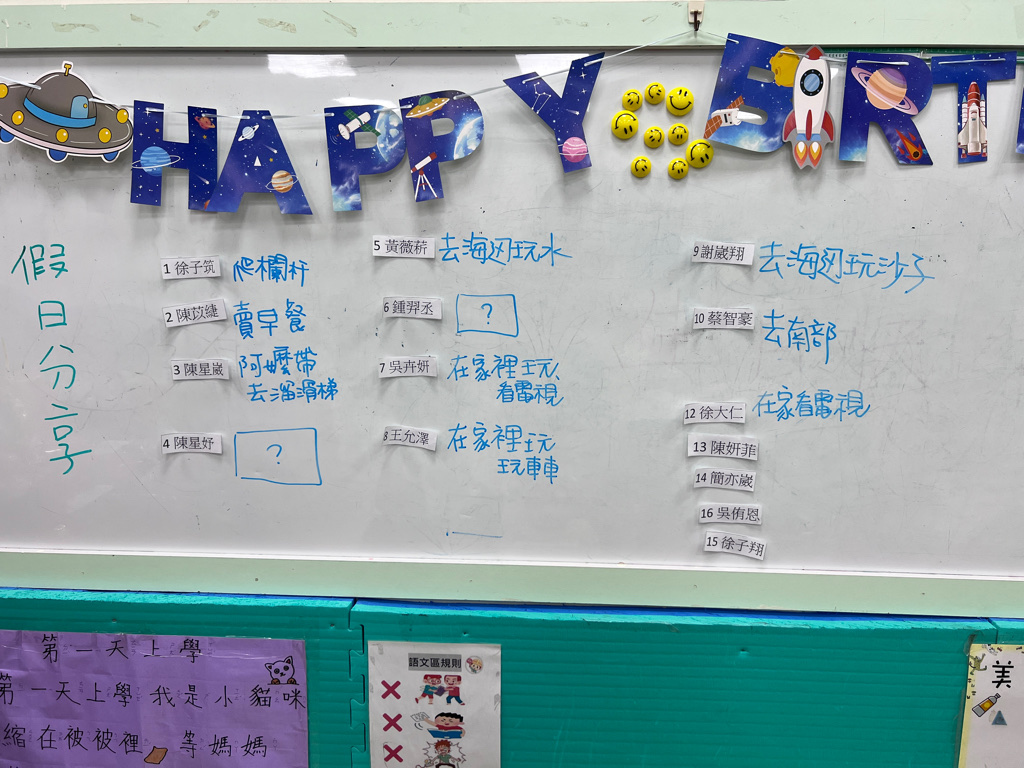 HAPPY BIRT
假日分享
1 徐子筑 爬欄杆
2 陳苡緁 賣早餐
3 陳星崴 阿嬤帶
去溜滑梯
4 陳星妤 ?
5 黃薇菥 去海边玩水
6 鍾羿丞 ?
7 吳卉妍 在家裡玩、
看電視
8 王允澤 在家裡玩
玩車車
9 謝崴翔 去海边玩沙子
10 蔡智豪 去南部
12 徐大仁 在家看電視
13 陳妍菲
14 簡亦崴
16 吳侑恩
15 徐子翔
第一天上學
第一天上學我是小貓咪
縮在被被裡 等媽媽
語文區規則
美